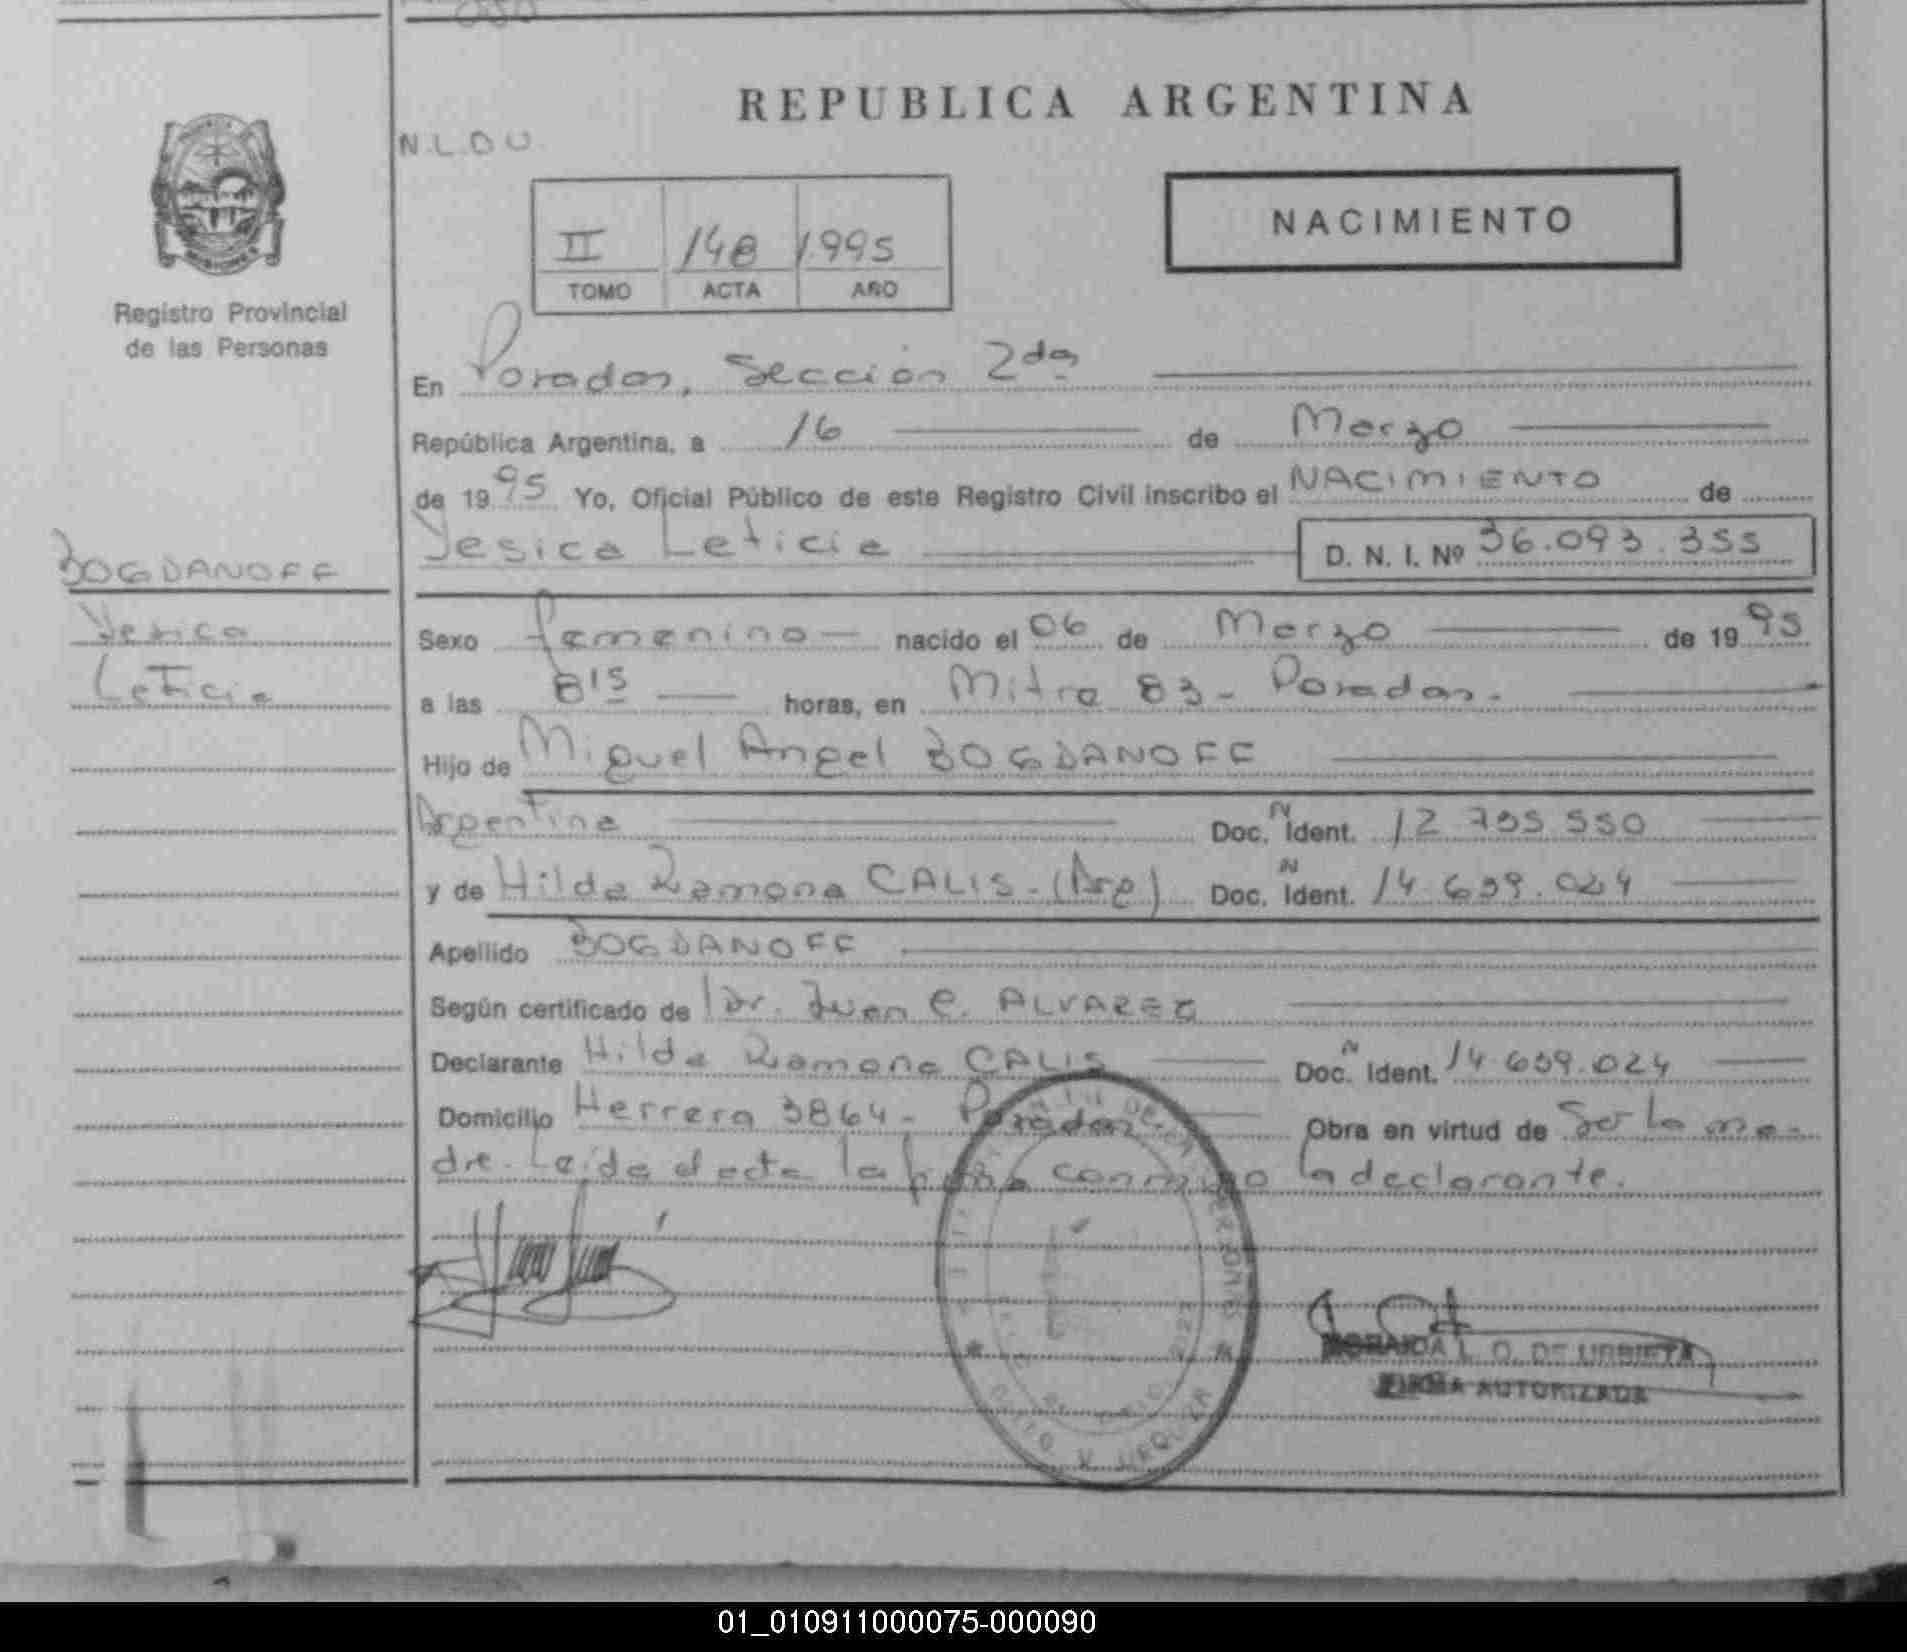 REPUBLICA ARGENTINA
N.L.D.U.
NACIMIENTO
II 148 1.995
TOMO ACTA AÑO
Registro Provincial
de las Personas
En Posadas, Sección 2da
República Argentina, a 16 de Marzo
de 1995 Yo, Oficial Público de este Registro Civil inscribo el NACIMIENTO de
Yesica Leticia D. N. I. Nº 36.093.355
BOGDANOFF
Yesica
Leticia
Sexo femenino nacido el 06 de Marzo de 1995
a las 8 15 horas, en Mitre 83 - Posadas.
Hijo de Miguel Angel BOGDANOFF
Argentina Doc. N Ident. 12 795 550
y de Hilda Ramona CALIS - (Arg) Doc. N Ident. 14.659.024
Apellido BOGDANOFF
Según certificado de Dr. Juan C. ALVAREZ
Declarante Hilda Ramona CALIS Doc. N Ident. 14.659.024
Domicilio Herrera 3864 - Posadas Obra en virtud de Ser la ma-
dre. Leída el acta la firma conmigo la declarante.
L. O. DE URBIETA
FIRMA AUTORIZADA
01_010911000075-000090